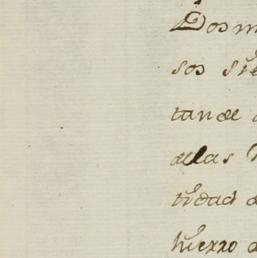 Dos m
sos sie
tan de
dellas
tidad d
hierro d